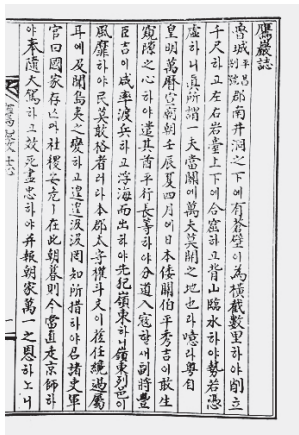 鷹巖誌
魯城 平昌別號 郡南井洞之下에有蒼壁이爲橫截數里하야削立
千尺하고左右岩臺上下에合窟하고背山臨水하야勢若憑
虛하니眞所謂一夫當關에萬夫莫開之地也라噫라粤自
皇明萬曆宣廟朝壬辰夏四月에日本倭關伯平秀吉이敢生
窺隙之心하야遣其酋平行長等하야分道入寇할새副將豐
臣吉이咸率波兵하고浮海而出하야先犯嶺東하니嶺東列邑이
風靡하야民莫敢格者러라本郡太守權斗文이莅任纔過屬
耳에及聞島夷之變하고遑遑汲汲罔知所措하야召諸吏軍
官曰國家存亡과社稷安危ㅣ在此朝暮則今當直走京師하
야奉隨大駕하고效死盡忠하야幷報朝家萬一之恩하노니
鷹巖誌
一